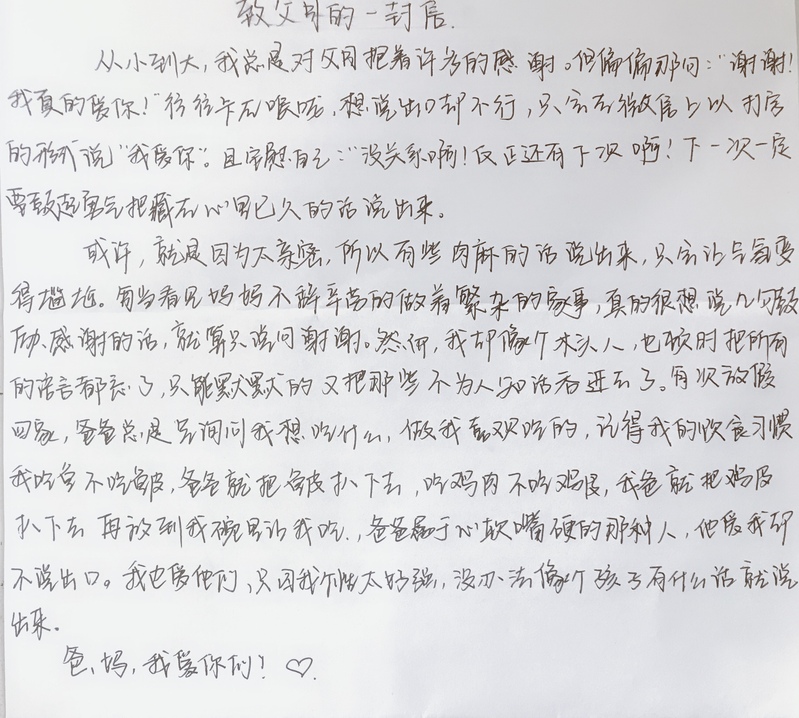 致父母的一封信.
从小到大，我总是对父母抱着许多的感谢。但偏偏那句："谢谢！
我真的爱你！"往往卡在喉咙，想说出口却不行，只会在微信上以打字
的形式说"我爱你"。且安慰自己："没关系啊！反正还有下次啊！下一次一定
要鼓起勇气把藏在心里已久的话说出来。
或许，就是因为太亲密，所以有些肉麻的话说出来，只会让气氛变
得尴尬。每当看见妈妈不辞辛苦的做着繁杂的家事，真的很想说几句鼓
励、感谢的话，就算只说句谢谢。然而，我却像个木头人，也顿时把所有
的语言都忘了，只能默默的又把那些不为人知话吞进去了。每次放假
回家，爸爸总是先询问我想吃什么，做我喜欢吃的，记得我的饮食习惯
我吃鱼不吃鱼皮，爸爸就把鱼皮扒下去，吃鸡肉不吃鸡皮，我爸就把鸡皮
扒下去 再放到我碗里让我吃.，爸爸属于心软嘴硬的那种人，他爱我却
不说出口。我也爱他们，只因我个性太好强，没办法像个孩子有什么话就说
出来。
爸，妈，我爱你们！♡.